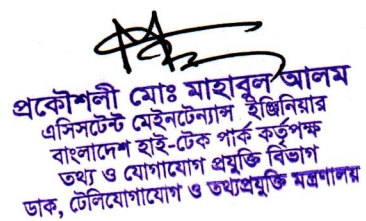 প্রকৌশলী মোঃ মাহাবুল আলম
এসিসটেন্ট মেইনটেন্যান্স ইঞ্জিনিয়ার
বাংলাদেশ হাই-টেক পার্ক কর্তৃপক্ষ
তথ্য ও যোগাযোগ প্রযুক্তি বিভাগ
ডাক, টেলিযোগাযোগ ও তথ্যপ্রযুক্তি মন্ত্রণালয়